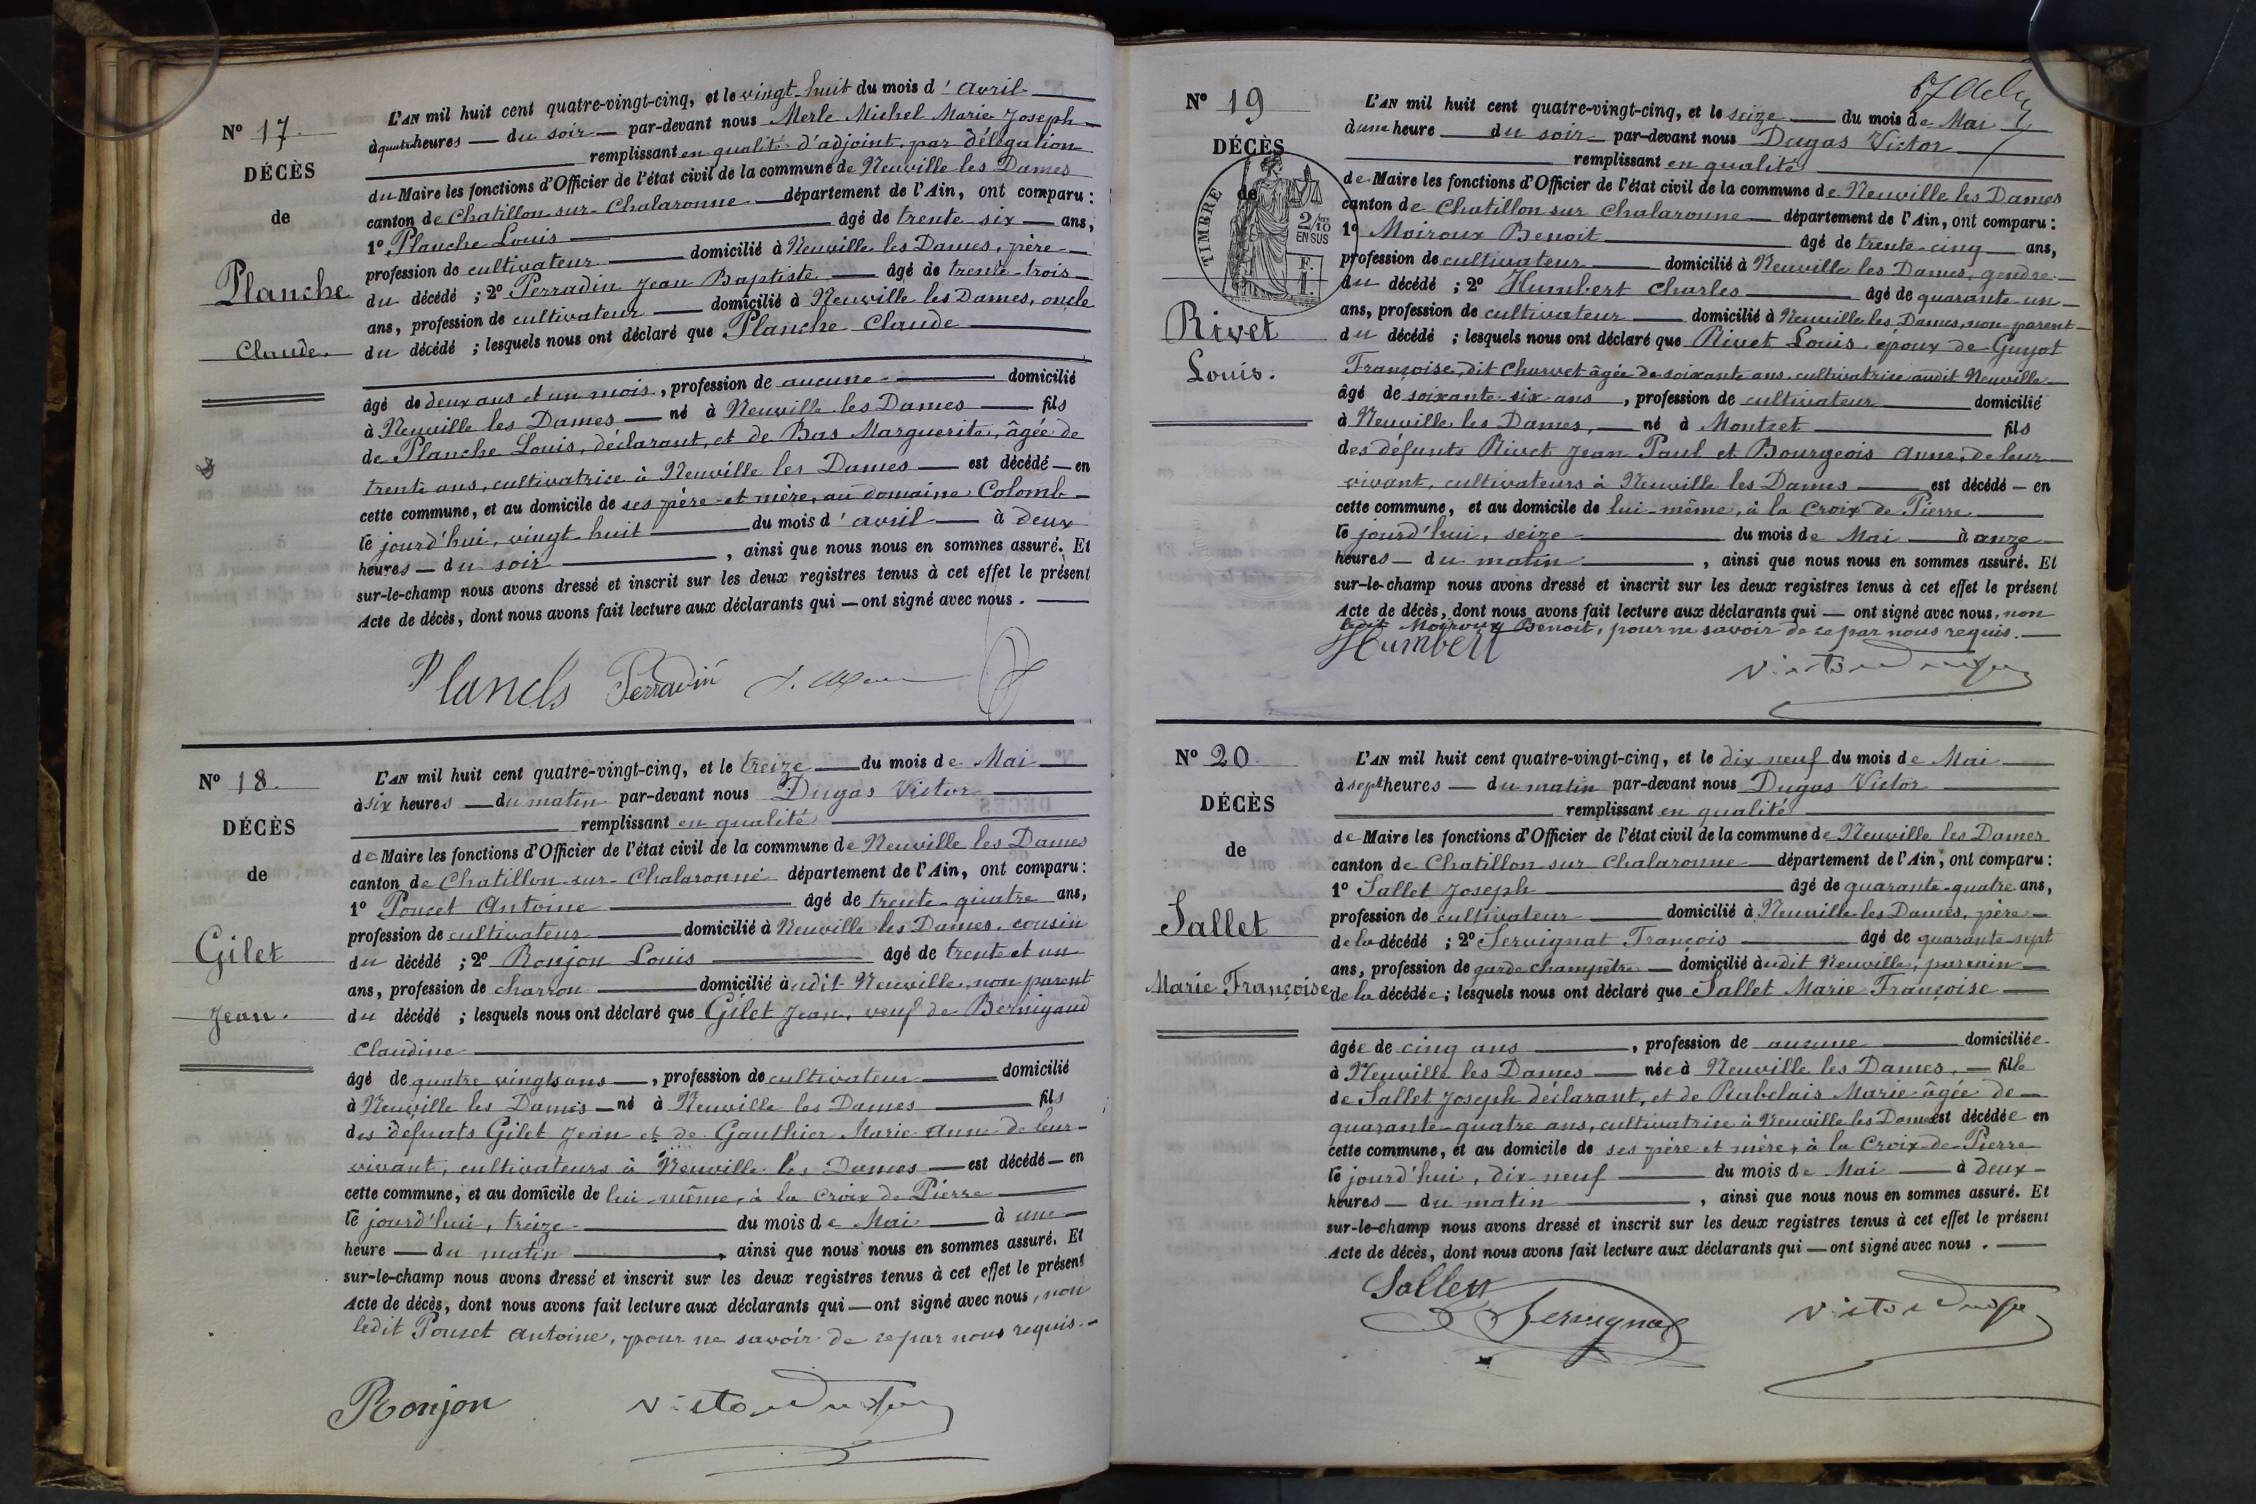 N° 17.
DÉCÈS
de
Planche
Claude.
L'AN mil huit cent quatre-vingt-cinq, et le vingt-huit du mois d'avril
à quatre heures — du soir — par-devant nous Merle Michel Marie Joseph
remplissant en qualité d'adjoint, par délégation
du Maire les fonctions d'Officier de l'état civil de la commune de Neuville les Dames
canton de Chatillon-sur-Chalaronne — département de l'Ain, ont comparu :
1° Planche Louis — âgé de trente six — ans,
profession de cultivateur — domicilié à Neuville les Dames, père
du décédé ; 2° Perradin Jean Baptiste — âgé de trente-trois
ans, profession de cultivateur — domicilié à Neuville les Dames, oncle
du décédé ; lesquels nous ont déclaré que Planche Claude
âgé de deux ans et un mois, profession de aucune — domicilié
à Neuville les Dames — né à Neuville les Dames — fils
de Planche Louis, déclarant, et de Bas Marguerite, âgée de
trente ans, cultivatrice à Neuville les Dames — est décédé — en
cette commune, et au domicile de ses père et mère, au domaine Colomb
le jourd'hui, vingt huit — du mois d'avril — à deux
heures — du soir —, ainsi que nous nous en sommes assuré. Et
sur-le-champ nous avons dressé et inscrit sur les deux registres tenus à cet effet le présent
Acte de décès, dont nous avons fait lecture aux déclarants qui — ont signé avec nous . —
Perradin
N° 18.
DÉCÈS
de
Gilet
Jean.
L'AN mil huit cent quatre-vingt-cinq, et le treize — du mois de Mai
à six heures — du matin par-devant nous Dugas Victor
remplissant en qualité
de Maire les fonctions d'Officier de l'état civil de la commune de Neuville les Dames
canton de Chatillon-sur-Chalaronne département de l'Ain, ont comparu :
1° Poncet Antoine — âgé de trente-quatre ans,
profession de cultivateur — domicilié à Neuville les Dames, cousin
du décédé ; 2° Ronjon Louis — âgé de trente et un
ans, profession de charron — domicilié à udit Neuville, non parent
du décédé ; lesquels nous ont déclaré que Gilet Jean, veuf de Bernigaud
Claudine
âgé de quatre vingts ans —, profession de cultivateur — domicilié
à Neuville les Dames — né à Neuville les Dames — fils
des défunts Gilet Jean et de Gauthier Marie Anne de leur
vivant, cultivateurs à Neuville les Dames — est décédé — en
cette commune, et au domicile de lui-même, à la Croix de Pierre
le jourd'hui, treize — du mois de Mai — à une
heure — du matin —, ainsi que nous nous en sommes assuré. Et
sur-le-champ nous avons dressé et inscrit sur les deux registres tenus à cet effet le présent
Acte de décès, dont nous avons fait lecture aux déclarants qui — ont signé avec nous, non
ledit Poncet Antoine, pour ne savoir de ce par nous requis. —
Ronjon
N° 19
DÉCÈS
de
TIMBRE
2/10
EN SUS
F.
1.
Rivet
Louis.
L'AN mil huit cent quatre-vingt-cinq, et le seize — du mois de Mai
à une heure — du soir — par-devant nous Dugas Victor
remplissant en qualité
de Maire les fonctions d'Officier de l'état civil de la commune de Neuville les Dames
canton de Chatillon sur Chalaronne — département de l'Ain, ont comparu :
1° Moiroux Benoit — âgé de trente-cinq — ans,
profession de cultivateur — domicilié à Neuville les Dames, gendre
du décédé ; 2° Humbert Charles — âgé de quarante un
ans, profession de cultivateur — domicilié à Neuville les Dames, non parent
du décédé ; lesquels nous ont déclaré que Rivet Louis, époux de Guyot
Françoise, dit Charvet âgée de soixante ans, cultivatrice audit Neuville
âgé de soixante-six ans, profession de cultivateur — domicilié
à Neuville les Dames, — né à Montset — fils
des défunts Rivet Jean Paul et Bourgeois Anne, de leur
vivant, cultivateurs à Neuville les Dames — est décédé — en
cette commune, et au domicile de lui-même, à la Croix de Pierre
le jourd'hui, seize — du mois de Mai — à onze
heures — du matin —, ainsi que nous nous en sommes assuré. Et
sur-le-champ nous avons dressé et inscrit sur les deux registres tenus à cet effet le présent
Acte de décès, dont nous avons fait lecture aux déclarants qui — ont signé avec nous, non
ledit Moiroux Benoit, pour ne savoir de ce par nous requis. —
Humbert
N° 20.
DÉCÈS
de
Sallet
Marie Françoise
L'AN mil huit cent quatre-vingt-cinq, et le dix neuf du mois de Mai
à sept heures — du matin par-devant nous Dugas Victor
remplissant en qualité
de Maire les fonctions d'Officier de l'état civil de la commune de Neuville les Dames
canton de Chatillon sur Chalaronne — département de l'Ain, ont comparu :
1° Sallet Joseph — âgé de quarante-quatre ans,
profession de cultivateur — domicilié à Neuville les Dames, père
de la décédé ; 2° Servignat François — âgé de quarante-sept
ans, profession de garde champêtre — domicilié à udit Neuville, parrain
de la décédée ; lesquels nous ont déclaré que Sallet Marie Françoise
âgée de cinq ans —, profession de aucune — domiciliée
à Neuville les Dames — née à Neuville les Dames, — fille
de Sallet Joseph déclarant, et de Rabelais Marie âgée de
quarante-quatre ans, cultivatrice à Neuville les Dames est décédée en
cette commune, et au domicile de ses père et mère, à la Croix-de-Pierre
le jourd'hui, dix neuf — du mois de Mai — à deux
heures — du matin —, ainsi que nous nous en sommes assuré. Et
sur-le-champ nous avons dressé et inscrit sur les deux registres tenus à cet effet le présent
Acte de décès, dont nous avons fait lecture aux déclarants qui — ont signé avec nous . —
Sallet
Servignat